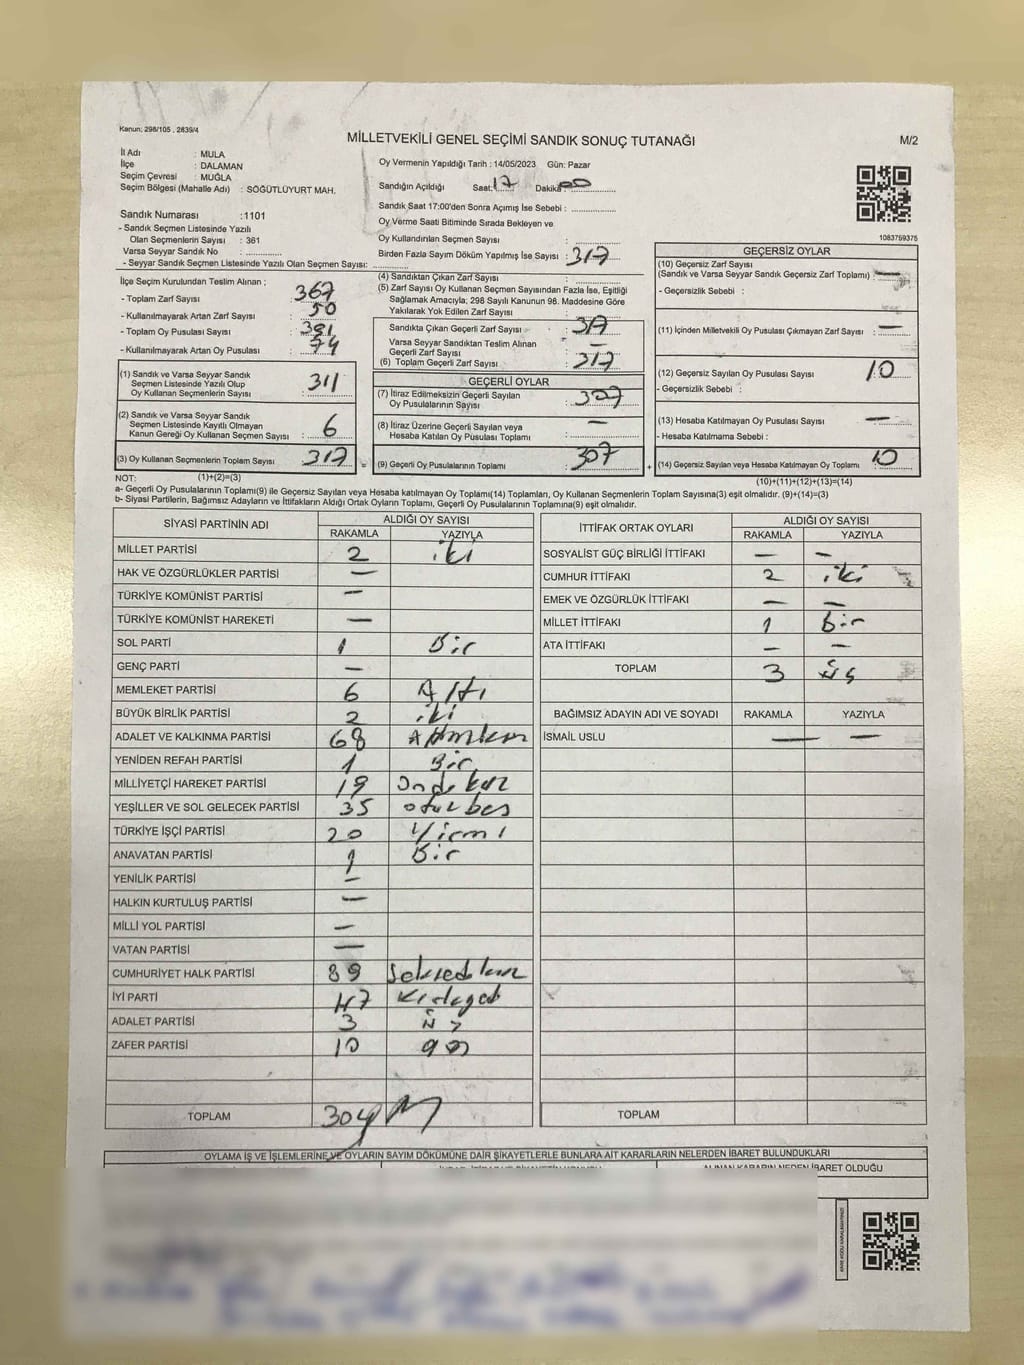 Kanun; 298/105 , 2839/4
MİLLETVEKİLİ GENEL SEÇİMİ SANDIK SONUÇ TUTANAĞI
M/2
İl Adı : MULA
İlçe : DALAMAN
Seçim Çevresi : MUĞLA
Seçim Bölgesi (Mahalle Adı) : SÖĞÜTLÜYURT MAH.
Sandık Numarası :1101
- Sandık Seçmen Listesinde Yazılı
Olan Seçmenlerin Sayısı : 361
Varsa Seyyar Sandık No :
- Seyyar Sandık Seçmen Listesinde Yazılı Olan Seçmen Sayısı:
İlçe Seçim Kurulundan Teslim Alınan ;
- Toplam Zarf Sayısı : 367
- Kullanılmayarak Artan Zarf Sayısı : 50
- Toplam Oy Pusulası Sayısı : 391
- Kullanılmayarak Artan Oy Pusulası : 74
(1) Sandık ve Varsa Seyyar Sandık
Seçmen Listesinde Yazılı Olup
Oy Kullanan Seçmenlerin Sayısı : 311
(2) Sandık ve Varsa Seyyar Sandık
Seçmen Listesinde Kayıtlı Olmayan
Kanun Gereği Oy Kullanan Seçmen Sayısı : 6
(3) Oy Kullanan Seçmenlerin Toplam Sayısı : 317
Oy Vermenin Yapıldığı Tarih : 14/05/2023 Gün: Pazar
Sandığın Açıldığı Saat: 17 Dakika: 00
Sandık Saat 17:00'den Sonra Açımış İse Sebebi :
Oy Verme Saati Bitiminde Sırada Bekleyen ve
Oy Kullandırılan Seçmen Sayısı :
Birden Fazla Sayım Döküm Yapılmış İse Sayısı : 317
(4) Sandıktan Çıkan Zarf Sayısı :
(5) Zarf Sayısı Oy Kullanan Seçmen Sayısından Fazla İse, Eşitliği
Sağlamak Amacıyla; 298 Sayılı Kanunun 98. Maddesine Göre
Yakılarak Yok Edilen Zarf Sayısı :
Sandıkta Çıkan Geçerli Zarf Sayısı : 317
Varsa Seyyar Sandıktan Teslim Alınan
Geçerli Zarf Sayısı : —
(6) Toplam Geçerli Zarf Sayısı : 317
GEÇERLİ OYLAR
(7) İtiraz Edilmeksizin Geçerli Sayılan
Oy Pusulalarının Sayısı : 307
(8) İtiraz Üzerine Geçerli Sayılan veya
Hesaba Katılan Oy Pusulası Toplamı : —
= (9) Geçerli Oy Pusulalarının Toplamı : 307
1083759375
GEÇERSİZ OYLAR
(10) Geçersiz Zarf Sayısı
(Sandık ve Varsa Seyyar Sandık Geçersiz Zarf Toplamı) : —
- Geçersizlik Sebebi :
(11) İçinden Milletvekili Oy Pusulası Çıkmayan Zarf Sayısı : —
(12) Geçersiz Sayılan Oy Pusulası Sayısı : 10
- Geçersizlik Sebebi :
(13) Hesaba Katılmayan Oy Pusulası Sayısı : —
- Hesaba Katılmama Sebebi :
+ (14) Geçersiz Sayılan veya Hesaba Katılmayan Oy Toplamı : 10
NOT: (1)+(2)=(3)
(10)+(11)+(12)+(13)=(14)
a- Geçerli Oy Pusulalarının Toplamı(9) ile Geçersiz Sayılan veya Hesaba katılmayan Oy Toplamı(14) Toplamları, Oy Kullanan Seçmenlerin Toplam Sayısına(3) eşit olmalıdır. (9)+(14)=(3)
b- Siyasi Partilerin, Bağımsız Adayların ve İttifakların Aldığı Ortak Oyların Toplamı, Geçerli Oy Pusulalarının Toplamına(9) eşit olmalıdır.
SİYASİ PARTİNİN ADI ALDIĞI OY SAYISI
RAKAMLA YAZIYLA
MİLLET PARTİSİ 2 iki
HAK VE ÖZGÜRLÜKLER PARTİSİ —
TÜRKİYE KOMÜNİST PARTİSİ —
TÜRKİYE KOMÜNİST HAREKETİ —
SOL PARTİ 1 Bir
GENÇ PARTİ —
MEMLEKET PARTİSİ 6 Altı
BÜYÜK BİRLİK PARTİSİ 2 iki
ADALET VE KALKINMA PARTİSİ 68
YENİDEN REFAH PARTİSİ 1 Bir
MİLLİYETÇİ HAREKET PARTİSİ 19
YEŞİLLER VE SOL GELECEK PARTİSİ 35 otuz beş
TÜRKİYE İŞÇİ PARTİSİ 20 Yirmi
ANAVATAN PARTİSİ 1 Bir
YENİLİK PARTİSİ —
HALKIN KURTULUŞ PARTİSİ —
MİLLİ YOL PARTİSİ —
VATAN PARTİSİ —
CUMHURİYET HALK PARTİSİ 89
İYİ PARTİ 47
ADALET PARTİSİ 3 üç
ZAFER PARTİSİ 10 on
TOPLAM 304
İTTİFAK ORTAK OYLARI ALDIĞI OY SAYISI
RAKAMLA YAZIYLA
SOSYALİST GÜÇ BİRLİĞİ İTTİFAKI — —
CUMHUR İTTİFAKI 2 iki
EMEK VE ÖZGÜRLÜK İTTİFAKI — —
MİLLET İTTİFAKI 1 Bir
ATA İTTİFAKI — —
TOPLAM 3 üç
BAĞIMSIZ ADAYIN ADI VE SOYADI RAKAMLA YAZIYLA
İSMAİL USLU — —
TOPLAM
OYLAMA İŞ VE İŞLEMLERİNE VE OYLARIN SAYIM DÖKÜMÜNE DAİR ŞİKAYETLERLE BUNLARA AİT KARARLARIN NELERDEN İBARET BULUNDUKLARI
ALINAN KARARIN NEDEN İBARET OLDUĞU